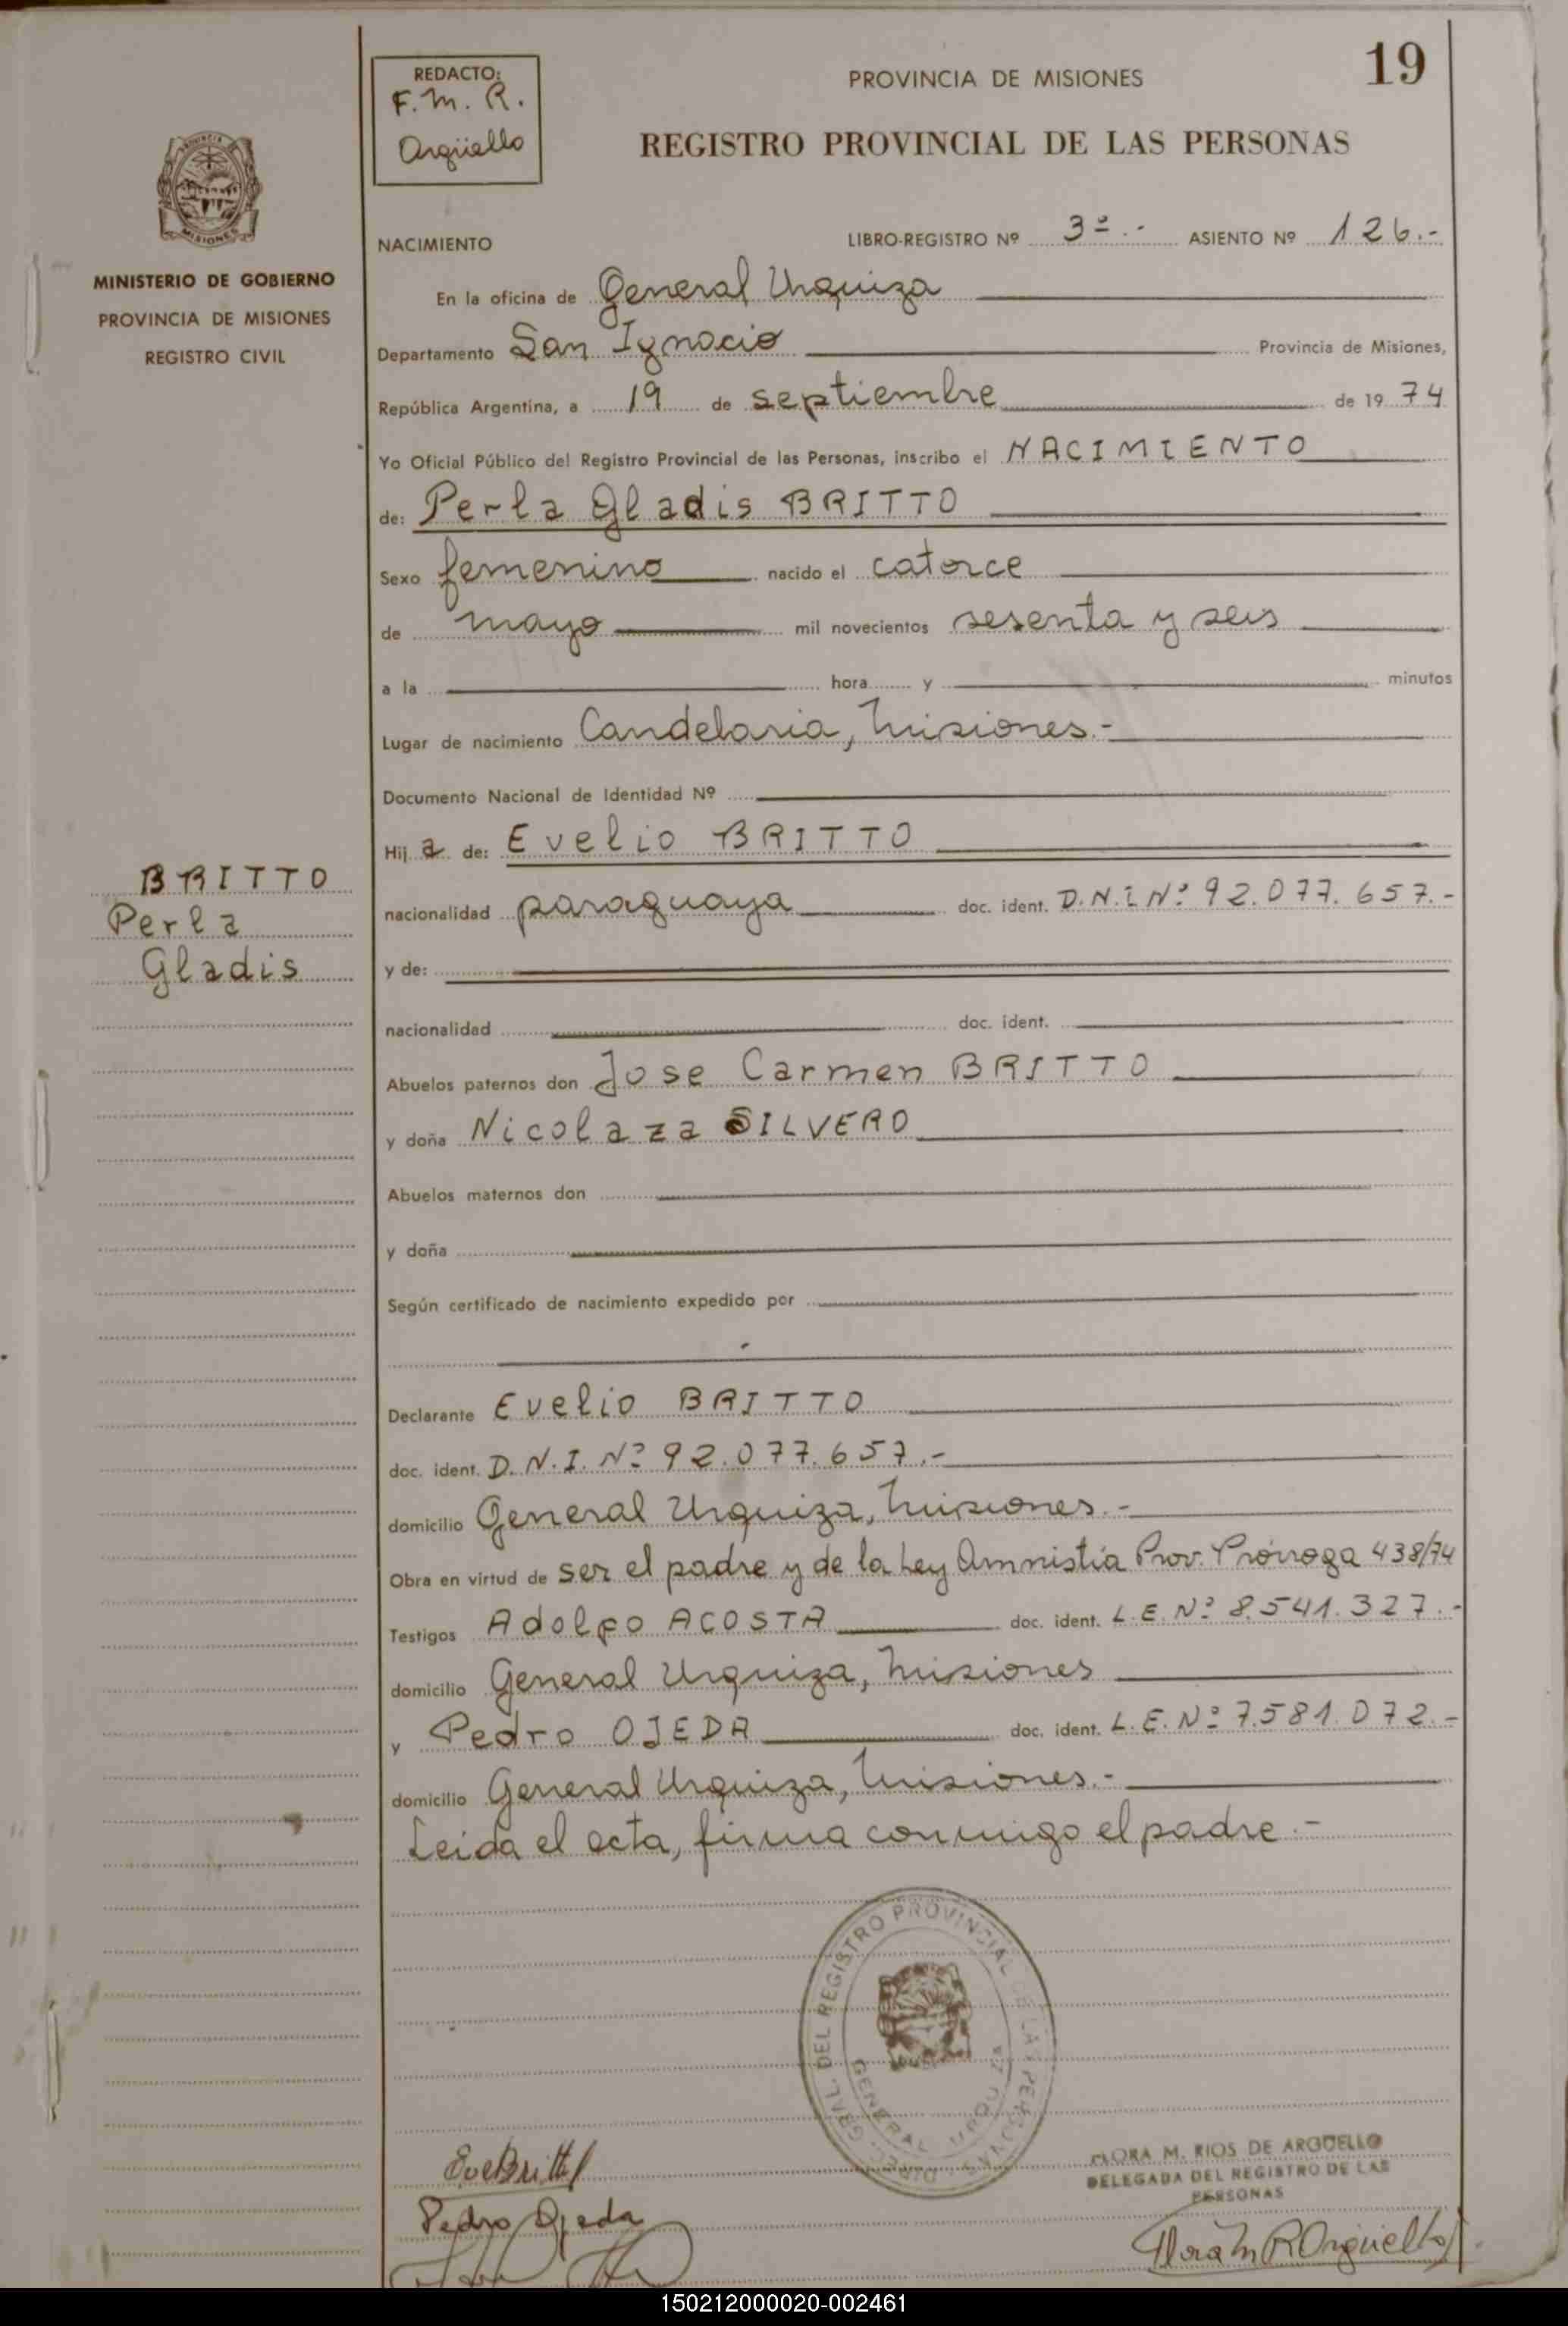 19
REDACTO:
F. M. R.
Argüello
PROVINCIA DE MISIONES
REGISTRO PROVINCIAL DE LAS PERSONAS
MISIONES
MINISTERIO DE GOBIERNO
PROVINCIA DE MISIONES
REGISTRO CIVIL
NACIMIENTO LIBRO-REGISTRO Nº 3º.- ASIENTO Nº 126.-
En la oficina de General Urquiza
Departamento San Ignacio Provincia de Misiones,
República Argentina, a 19 de septiembre de 19 74
Yo Oficial Público del Registro Provincial de las Personas, inscribo el NACIMIENTO
de: Perla Gladis BRITTO
Sexo femenino nacido el catorce
de mayo mil novecientos sesenta y seis
a la hora y minutos
Lugar de nacimiento Candelaria, Misiones.-
Documento Nacional de Identidad Nº
Hij a de: Evelio BRITTO
BRITTO
Perla
Gladis
nacionalidad paraguaya doc. ident. D.N.I Nº 92.077.657.-
y de:
nacionalidad doc. ident.
Abuelos paternos don Jose Carmen BRITTO
y doña Nicolaza SILVERO
Abuelos maternos don
y doña
Según certificado de nacimiento expedido por
Declarante Evelio BRITTO
doc. ident. D.N.I. Nº 92.077.657.-
domicilio General Urquiza, Misiones.-
Obra en virtud de ser el padre y de la Ley Amnistía Prov. Prórroga 438/74
Testigos Adolfo ACOSTA doc. ident. L.E. Nº 8.541.327.-
domicilio General Urquiza, Misiones
y Pedro OJEDA doc. ident. L.E. Nº 7.581.072.-
domicilio General Urquiza, Misiones.-
Leida el acta, firma conmigo el padre.-
DEL REGISTRO PROVINCIAL DE LAS PERSONAS
GENERAL URQUIZA
FLORA M. RIOS DE ARGÜELLO
DELEGADA DEL REGISTRO DE LAS
PERSONAS
EveBritto
Pedro Ojeda
Flora M R Argüello
150212000020-002461